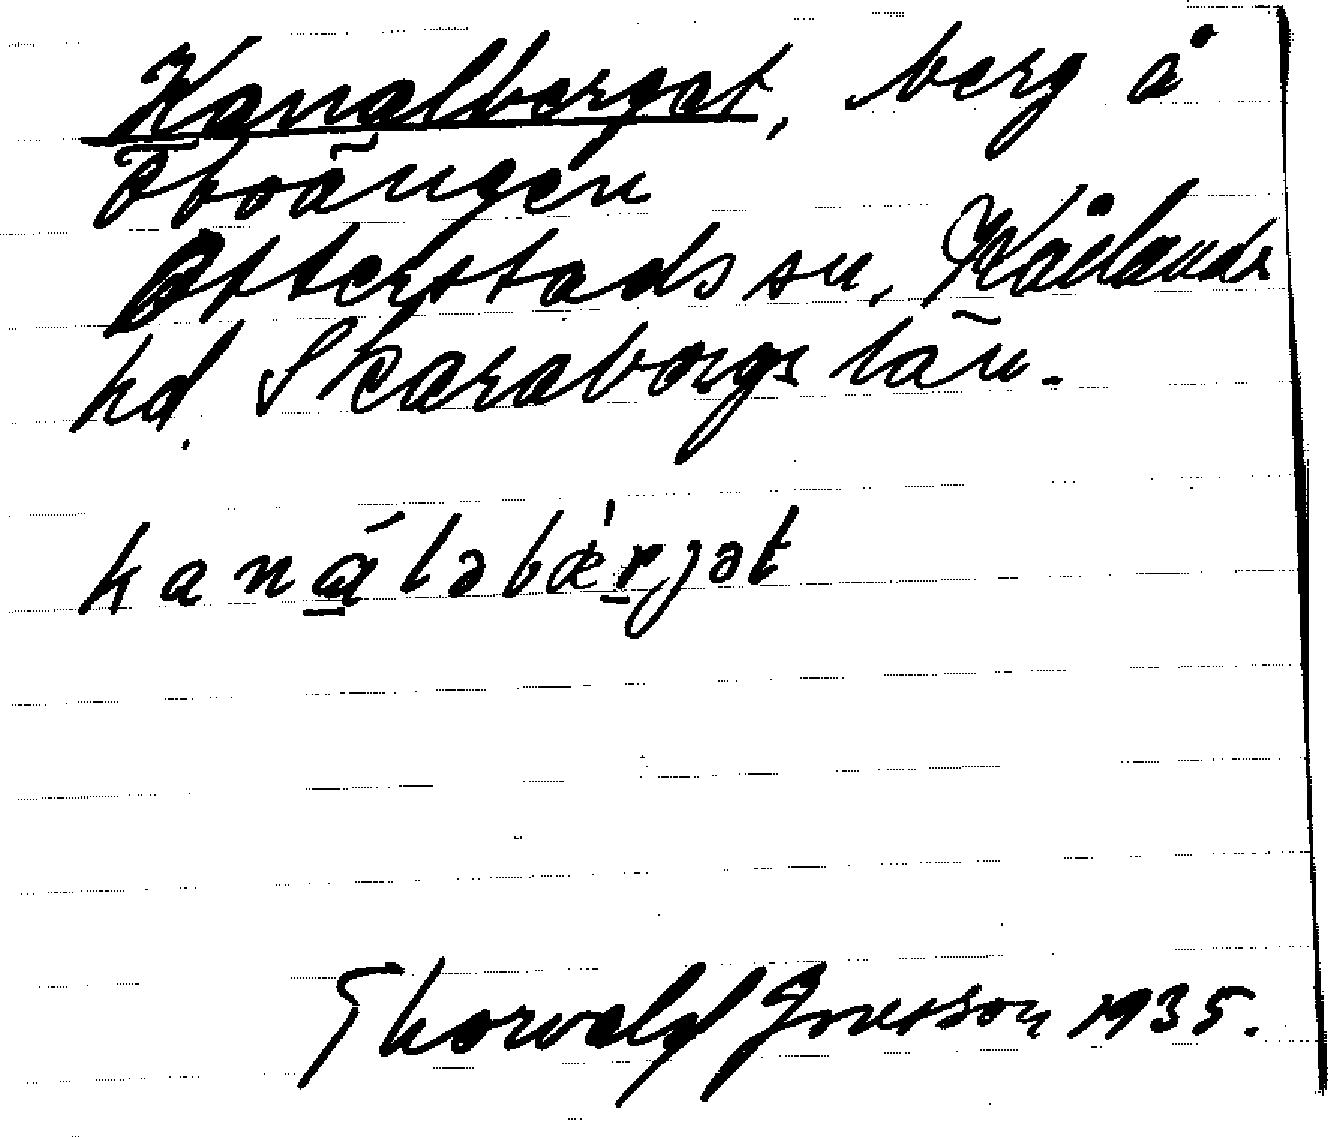 Kanalberget, berg å
Öboängen
Otterstads sn, Kålands
hd. Skaraborgs län.
kanáləbæ̀rjət
Thorwald Jonsson 1935.